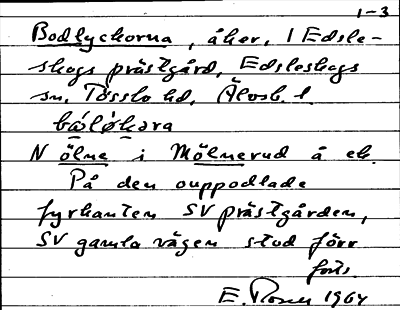 1-3
Bodlyckorna, åker, 1 Edsle-
skogs prästgård, Edsleskogs
sn, Tössbo hd, Älvsb. l.
N ölne i Mölnerud å ek.
På den ouppodlade
fyrkanten SV prästgården,
SV gamla vägen stod förr
forts.
E. Rosen 1964